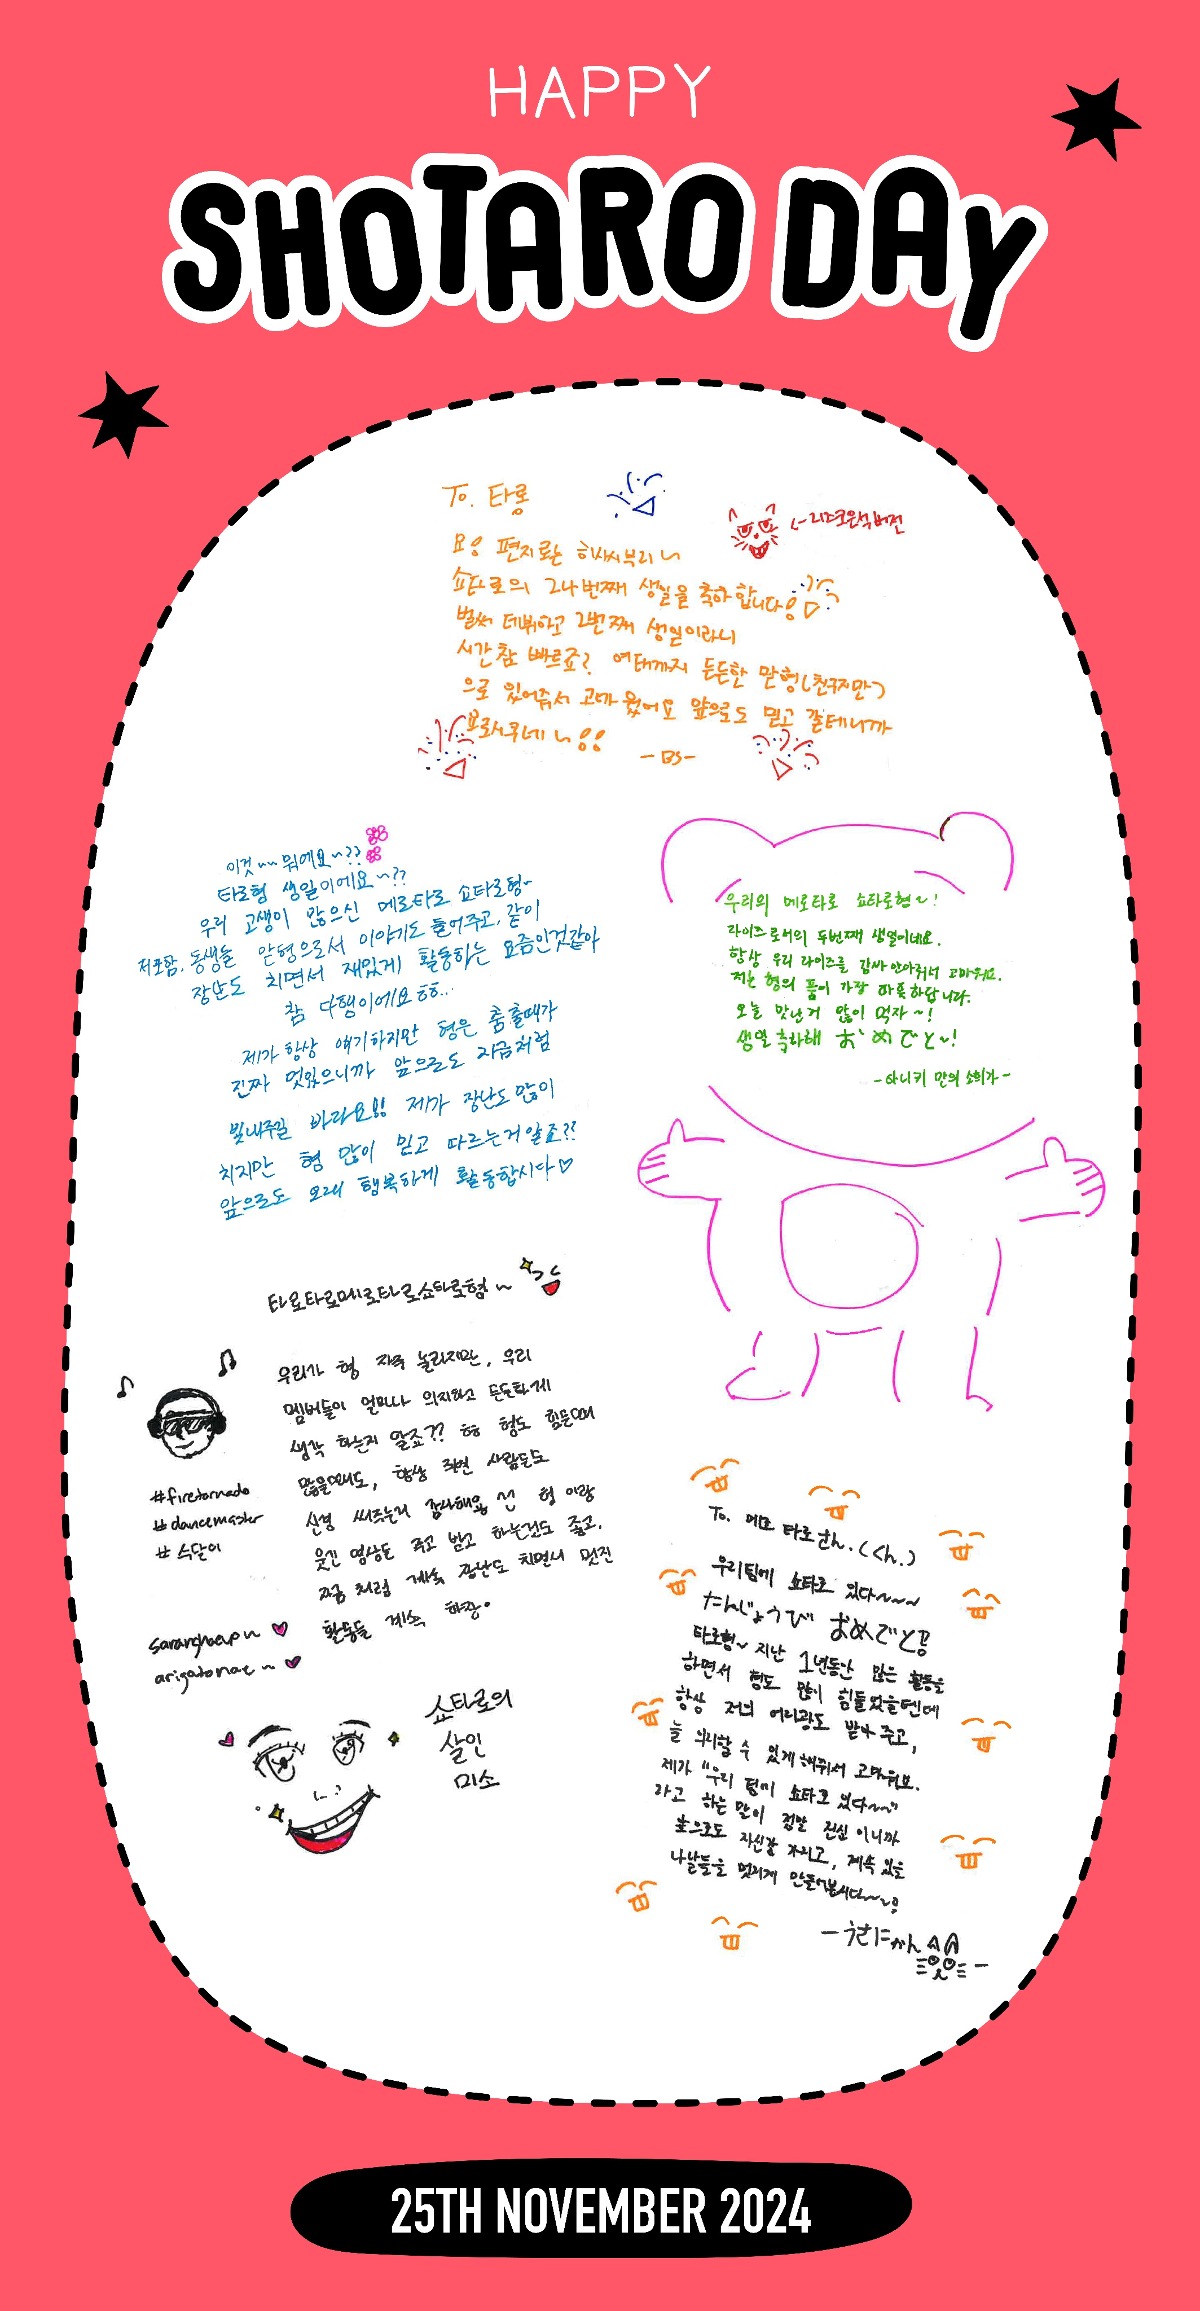 HAPPY
SHOTARO DAY
To. 타롱
요! 편지로는 히사시부리~
쇼타로의 24번째 생일을 축하합니다!
벌써 데뷔하고 2번째 생일이라니
시간 참 빠르죠? 여태까지 든든한 맏형(친구지만)
으로 있어줘서 고마웠어요 앞으로도 믿고 갈테니까
요로시쿠네~!!
-BS-
이것~~ 뭐에요~??
타로형 생일이에요~??
우리 고생이 많으신 메로타로 쇼타로형~
저포함, 동생들 맏형으로서 이야기도 들어주고, 같이
장난도 치면서 재밌게 활동하는 요즘인것같아
참 다행이에요 ㅎㅎ...
제가 항상 얘기하지만 형은 춤출때가
진짜 멋있으니까 앞으로도 지금처럼
빛내주길 바라요!! 제가 장난도 많이
치지만 형 많이 믿고 따르는거 알죠??
앞으로도 오래 행복하게 활동합시다♡
우리의 메로타로 쇼타로형~!
라이즈로서의 두번째 생일이네요.
항상 우리 라이즈를 감싸 안아줘서 고마워요.
저는 형의 품이 가장 따뜻하답니다.
오늘 맛난거 많이 먹자~!
생일 축하해 おめでと~!
-아니키 만의 소희가-
타로타로메로타로쇼타로형~
우리가 형 자주 놀리지만, 우리
멤버들이 얼마나 의지하고 든든하게
생각 하는지 알죠?? ㅎㅎ 형도 힘든때
많을텐데도, 항상 주변 사람들도
신경 써주는거 감사해요 전 형 이랑
웃긴 영상들 주고 받고 하는것도 좋고,
지금 처럼 계속 장난도 치면서 멋진
활동들 계속 하장.
#firetornado
#dancemaster
#수달이
saranghaeyo~
arigatonae~
쇼타로의
살인
미소
To. 메로 타로さん.(くん.)
우리팀에 쇼타로 있다~~~~
たんじょうび おめでとう
타로형~ 지난 1년동안 많은 활동을
하면서 형도 많이 힘들었을텐데
항상 저의 어리광도 받아 주고,
늘 의지할 수 있게 해줘서 고마워요.
제가 "우리 팀에 쇼타로 있다~~"
라고 하는 말이 정말 진심 이니까
앞으로도 자신감 가지고, 계속 있을
나날들을 멋지게 만들어봅시다~~!
25TH NOVEMBER 2024